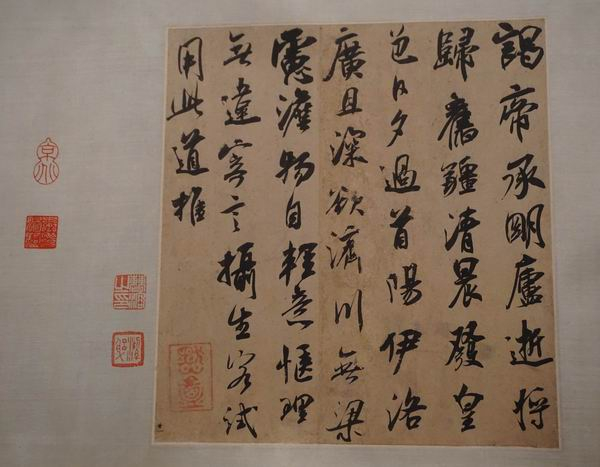 謁帝承明廬逝將
歸舊疆清晨發皇
邑日夕過首陽伊洛
廣且深欲濟川無梁
慮澹物自輕意愜理
無違寄言攝生客試
用此道推